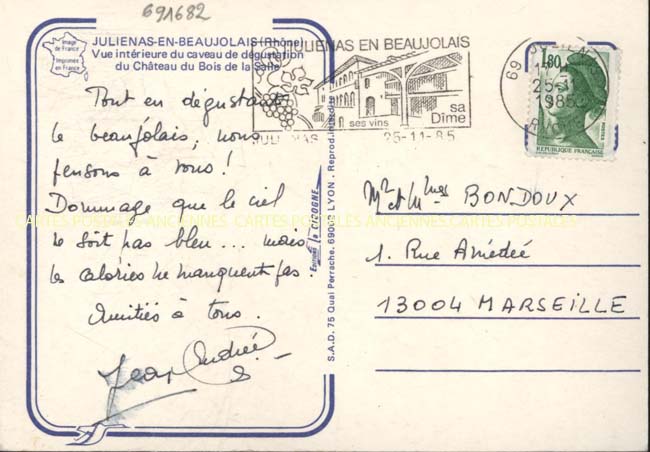 691682
Image
de France
Imprimée
en France
JULIENAS-EN-BEAUJOLAIS (Rhône)
Vue intérieure du caveau de dégustation
du Château du Bois de la Salle
Tout en dégustant
le beaujolais, nous
pensons à vous !
Dommage que le ciel
ne soit pas bleu... mais
les calories ne manquent pas.
Amitiés à tous.
Jean Andrée
JULIENAS EN BEAUJOLAIS
ses vins
sa
Dîme
JULIENAS
25-11-85
69 JULIENAS
25-11
1985
RHONE
1,80
REPUBLIQUE FRANÇAISE
Editions la CIGOGNE
S.A.D. 75 Quai Perrache, 69002 LYON - Reprod. interdite
Mr et Mmes BONDOUX
1. Rue Amédée
13004 MARSEILLE
CARTES POSTALES ANCIENNES CARTES POSTALES ANCIENNES CARTES POSTALES